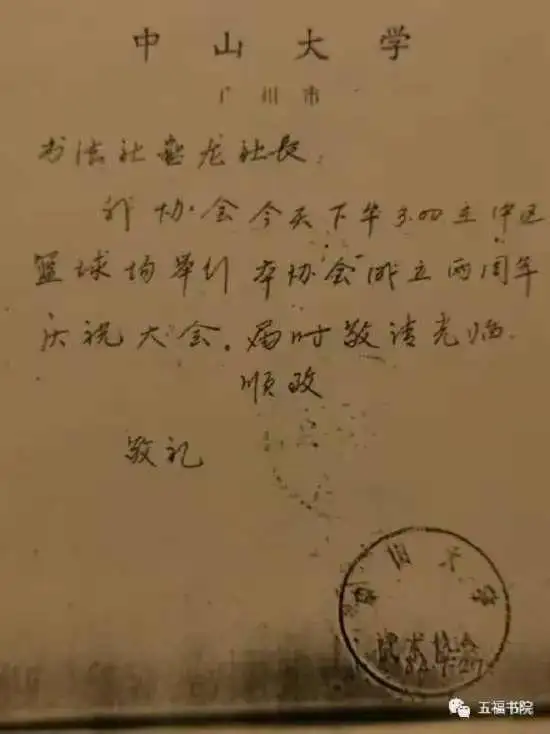 中山大学
广州市
书法社
龙社长:
我协会今天下午3.00在中区
篮球场举行本协会成立两周年
庆祝大会。届时敬请光临.
顺致
敬礼
中山大学
武术协会
五福书院